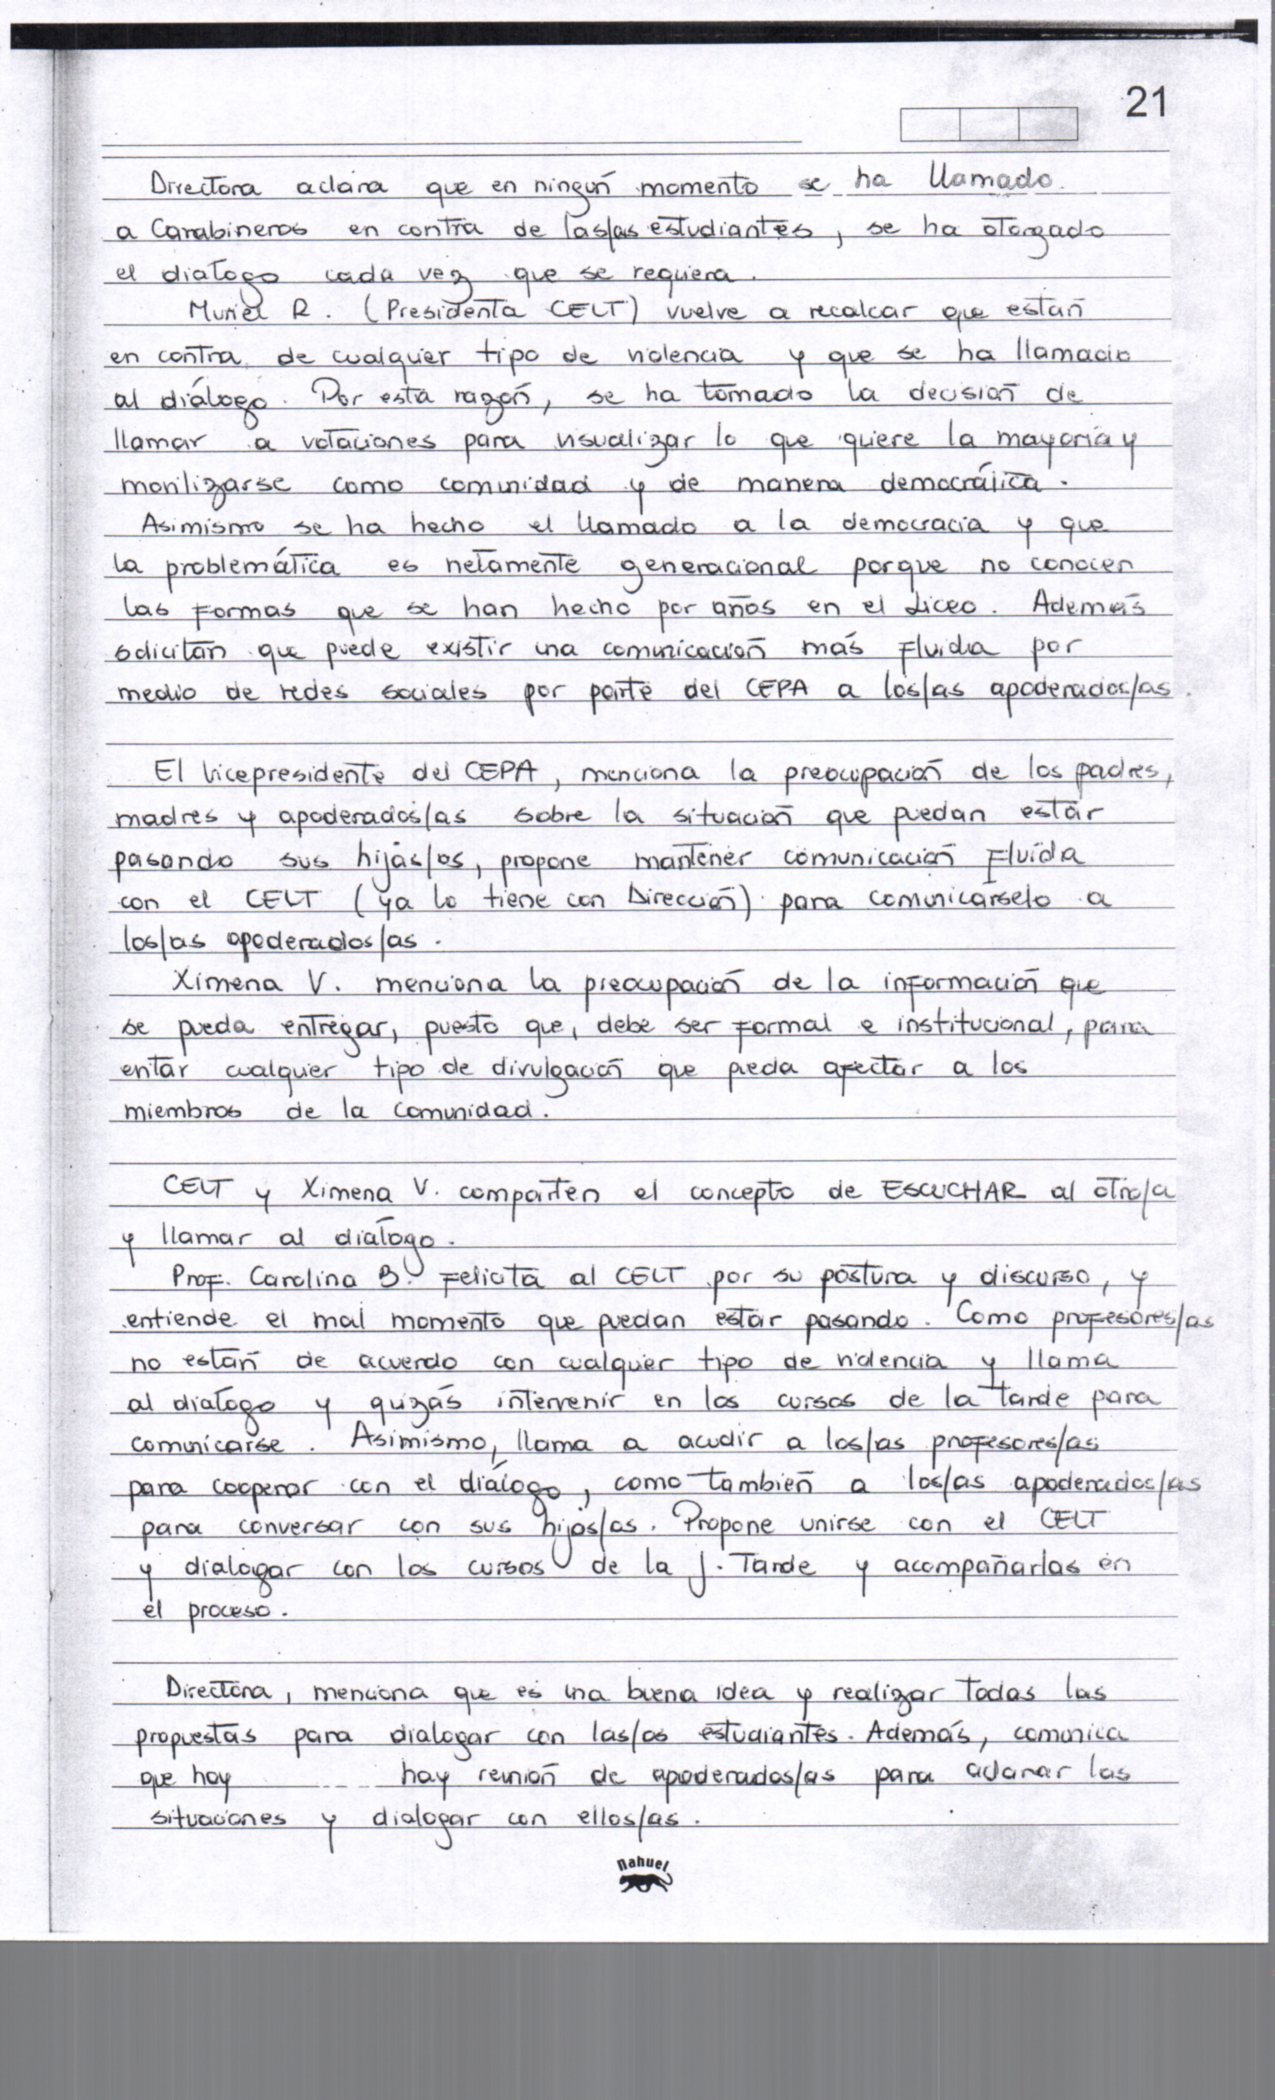 21
Directora aclara que en ningún momento se ha llamado
a Carabineros en contra de las/as estudiantes, se ha otorgado
el diálogo cada vez que se requiera.
Muriel R. (Presidenta CELT) vuelve a recalcar que están
en contra de cualquier tipo de violencia y que se ha llamado
al diálogo. Por esta razón, se ha tomado la decisión de
llamar a votaciones para visualizar lo que quiere la mayoría y
movilizarse como comunidad y de manera democrática.
Asimismo se ha hecho el llamado a la democracia y que
la problemática es netamente generacional porque no conocen
las formas que se han hecho por años en el Liceo. Además
solicitan que puede existir una comunicación más fluida por
medio de redes sociales por parte del CEPA a los/as apoderados/as.
El Vicepresidente del CEPA, menciona la preocupación de los padres,
madres y apoderados/as sobre la situación que puedan estar
pasando sus hijas/os, propone mantener comunicación fluída
con el CELT (ya lo tiene con Dirección) para comunicárselo a
los/as apoderados/as.
Ximena V. menciona la preocupación de la información que
se pueda entregar, puesto que, debe ser formal e institucional, para
evitar cualquier tipo de divulgación que pueda afectar a los
miembros de la comunidad.
CELT y Ximena V. comparten el concepto de ESCUCHAR al otro/a
y llamar al diálogo.
Prof. Carolina B. Felicita al CELT por su postura y discurso, y
entiende el mal momento que puedan estar pasando. Como profesores/as
no están de acuerdo con cualquier tipo de violencia y llama
al diálogo y quizás intervenir en los cursos de la tarde para
comunicarse. Asimismo, llama a acudir a los/as profesores/as
para cooperar con el diálogo, como también a los/as apoderados/as
para conversar con sus hijos/as. Propone unirse con el CELT
y dialogar con los cursos de la J. Tarde y acompañarlas en
el proceso.
Directora, menciona que es una buena idea y realizar todas las
propuestas para dialogar con las/os estudiantes. Además, comunica
que hoy hay reunión de apoderados/as para aclarar las
situaciones y dialogar con ellos/as.
nahuel